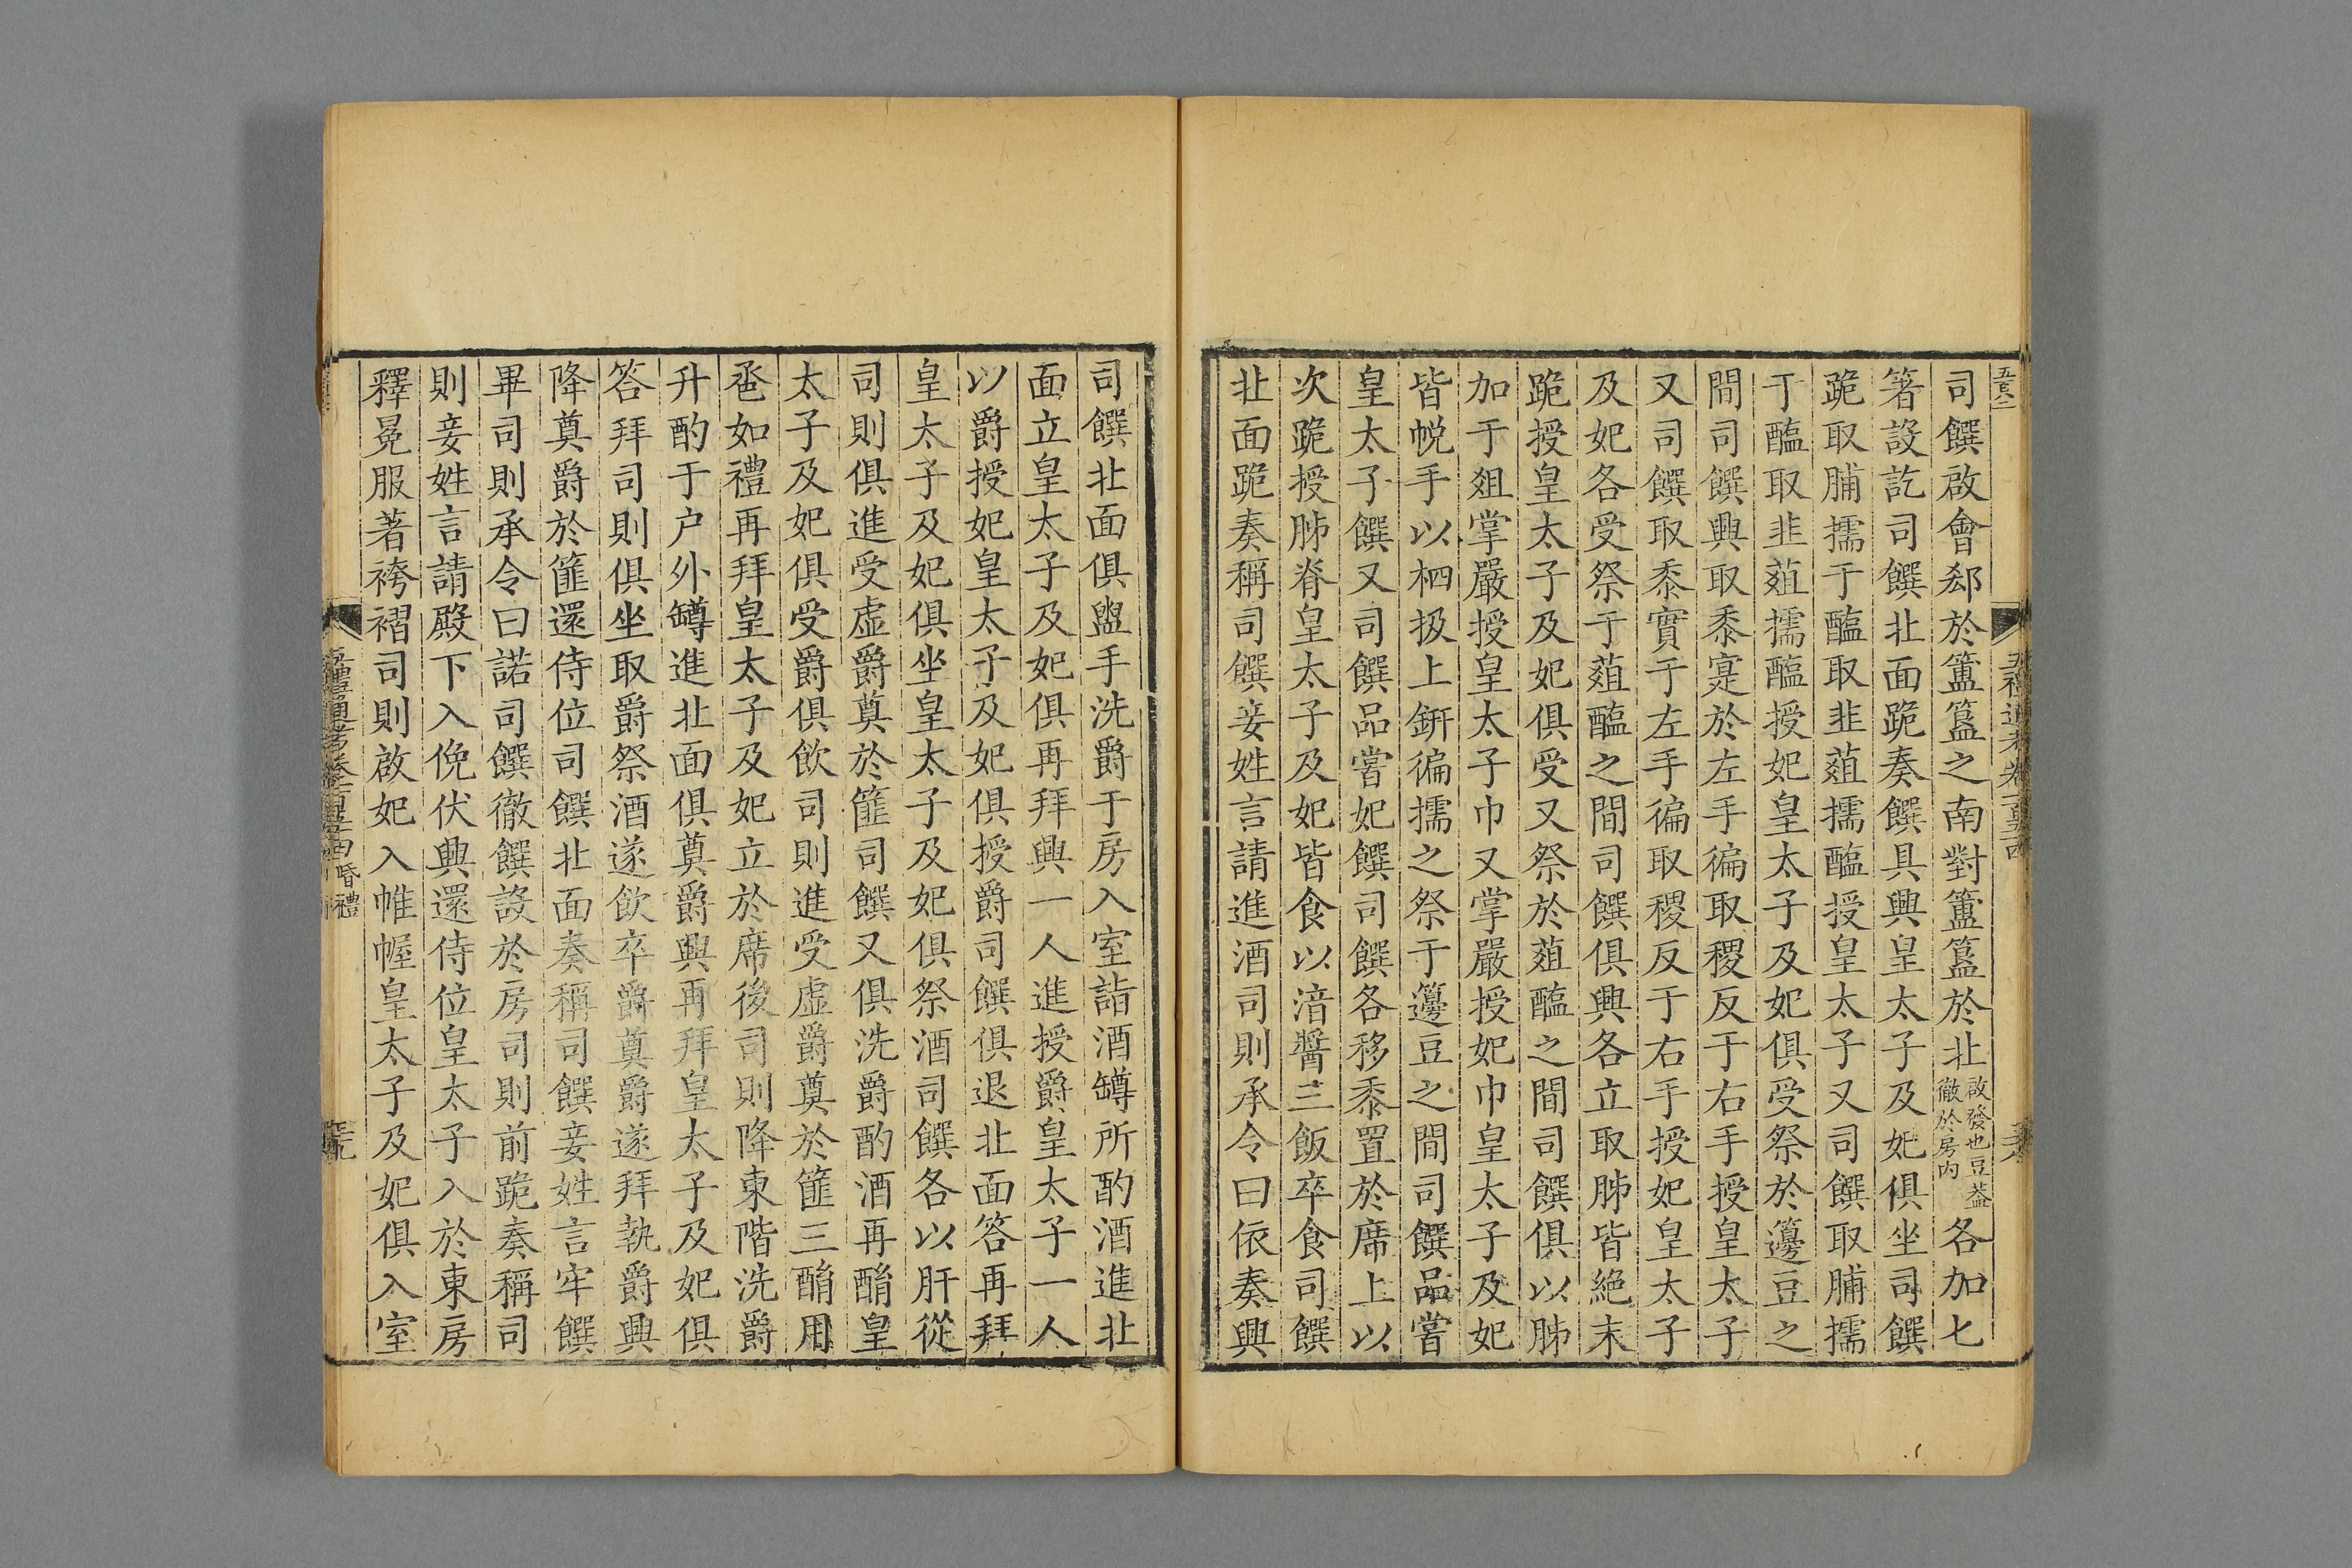 司饌啟會郄於簠簋之南對簠簋於北啟發也豆蓋徹於房内各加匕
箸設訖司饌北面跪奏饌具興皇太子及妃俱坐司饌
跪取脯擩于醢取韭菹擩醢授皇太子又司饌取脯擩
于醢取韭菹擩醢授妃皇太子及妃俱受祭於籩豆之
間司饌興取黍寔於左手徧取稷反于右手授皇太子
又司饌取黍實于左手徧取稷反于右手授妃皇太子
及妃各受祭于菹醢之間司饌俱興各立取胏皆絶末
跪授皇太子及妃俱受又祭於菹醢之間司饌俱以胏
加于俎掌嚴授皇太子巾又掌嚴授妃巾皇太子及妃
皆帨手以柶扱上鉶徧擩之祭于籩豆之間司饌品嘗
皇太子饌又司饌品嘗妃饌司饌各移黍置於席上以
次跪授胏脊皇太子及妃皆食以湇醬三飯卒食司饌
北面跪奏稱司饌妾姓言請進酒司則承令曰依奏興
司饌北面俱盥手洗爵于房入室詣酒罇所酌酒進北
面立皇太子及妃俱再拜興一人進授爵皇太子一人
以爵授妃皇太子及妃俱授爵司饌俱退北面答再拜
皇太子及妃俱坐皇太子及妃俱祭酒司饌各以肝從
司則俱進受虛爵奠於篚司饌又俱洗爵酌酒再酳皇
太子及妃俱受爵俱飲司則進受虛爵奠於篚三酳用
巹如禮再拜皇太子及妃立於席後司則降東階洗爵
升酌于户外罇進北面俱奠爵興再拜皇太子及妃俱
答拜司則俱坐取爵祭酒遂飲卒爵奠爵遂拜執爵興
降奠爵於篚還侍位司饌北面奏稱司饌妾姓言牢饌
畢司則承令曰諾司饌徹饌設於房司則前跪奏稱司
則妾姓言請殿下入俛伏興還侍位皇太子入於東房
釋冕服著袴褶司則啟妃入帷幄皇太子及妃俱入室
昏禮